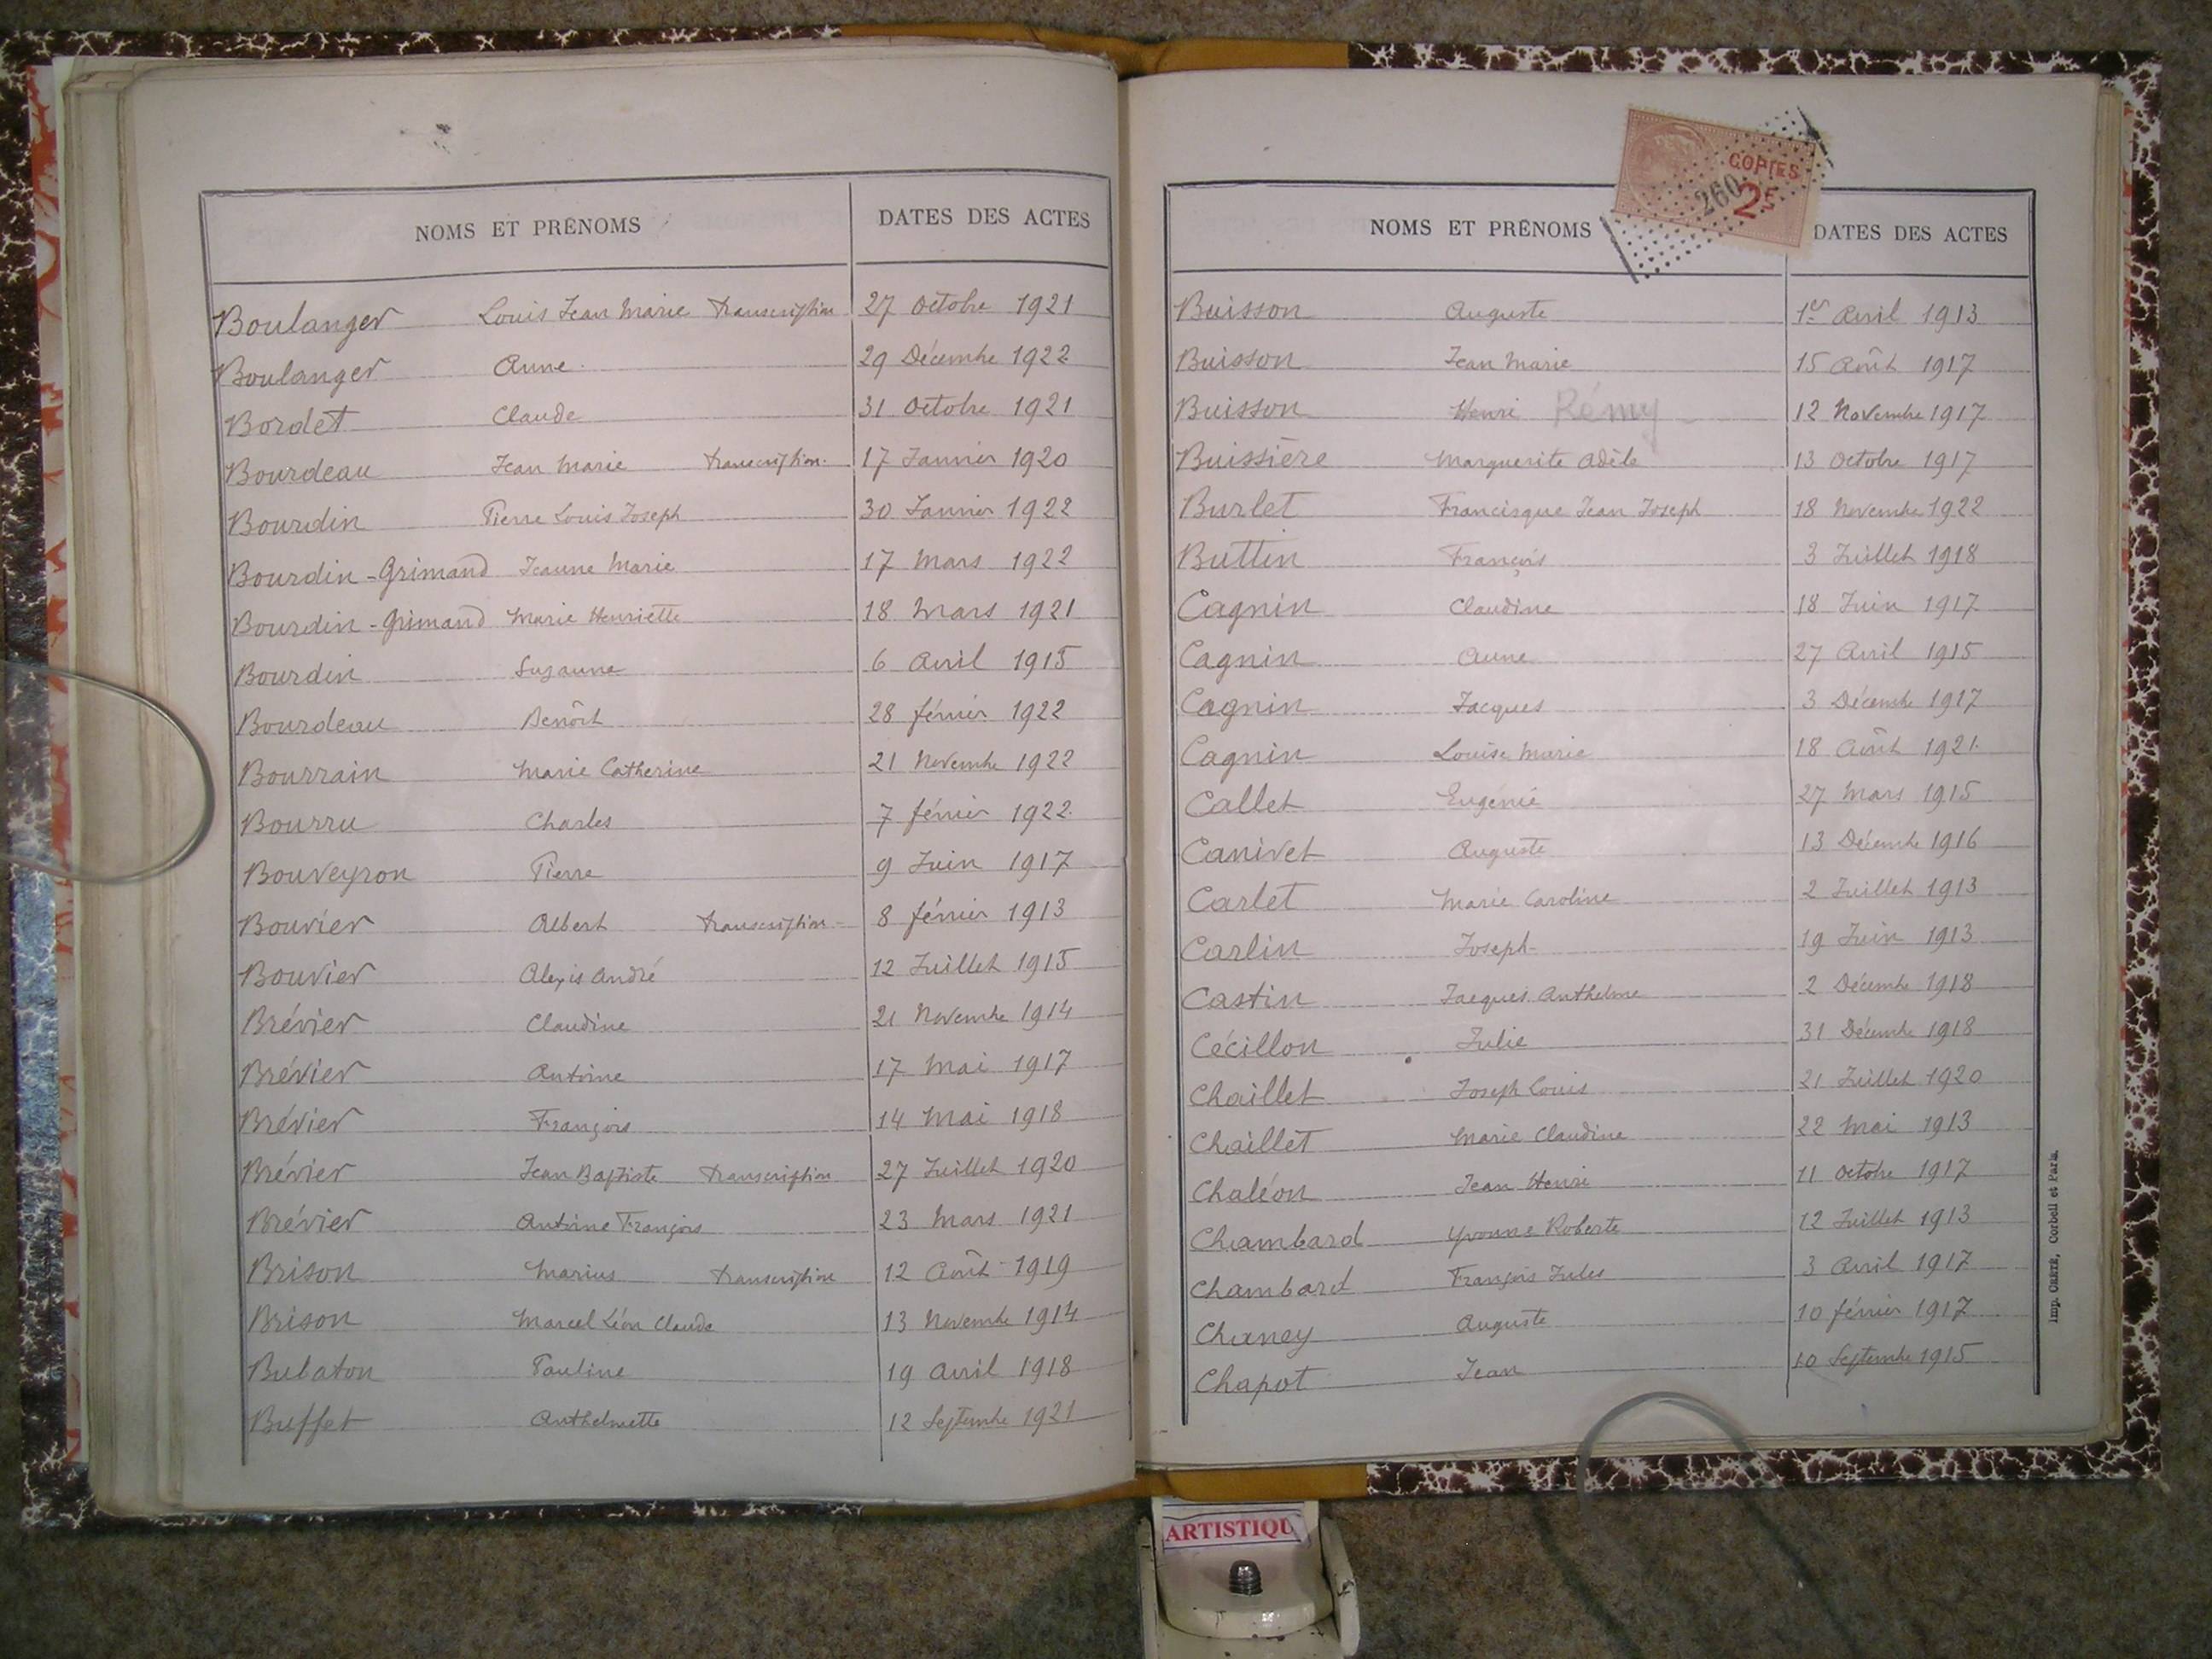 NOMS ET PRÉNOMS DATES DES ACTES
Boulanger Louis Jean Marie transcription 27 Octobre 1921
Boulanger Anne 29 Décembre 1922
Bordet Claude 31 Octobre 1921
Bourdeau Jean Marie transcription 17 Janvier 1920
Bourdin Pierre Louis Joseph 30 Janvier 1922
Bourdin-Grimand Jeanne Marie 17 Mars 1922
Bourdin-Grimand Marie Henriette 18 Mars 1921
Bourdin Suzanne 6 Avril 1915
Bourdeau Benoît 28 février 1922
Bourrain Marie Catherine 21 Novembre 1922
Bourru Charles 7 février 1922
Bouveyron Pierre 9 Juin 1917
Bouvier Albert transcription 8 février 1913
Bouvier Alexis André 12 Juillet 1915
Brévier Claudine 21 Novembre 1914
Brévier Antoine 17 Mai 1917
Brévier François 14 Mai 1918
Brévier Jean Baptiste transcription 27 Juillet 1920
Brévier Antoine François 23 Mars 1921
Brison Marius transcription 12 Août 1919
Brison Marcel Léon Claude 13 Novembre 1914
Bulaton Pauline 19 Avril 1918
Buffet Anthelmette 12 Septembre 1921
COPIES
260
2F
NOMS ET PRÉNOMS DATES DES ACTES
Buisson Auguste 1er Avril 1913
Buisson Jean Marie 15 Août 1917
Buisson Henri Rémy 12 Novembre 1917
Buissière Marguerite Adèle 13 Octobre 1917
Burlet Francisque Jean Joseph 18 Novembre 1922
Buttin François 3 Juillet 1918
Cagnin Claudine 18 Juin 1917
Cagnin Anne 27 Avril 1915
Cagnin Jacques 3 Décembre 1917
Cagnin Louise Marie 18 Août 1921
Callet Eugénie 27 Mars 1915
Canivet Auguste 13 Décembre 1916
Carlet Marie Caroline 2 Juillet 1913
Carlin Joseph 19 Juin 1913
Castin Jacques Anthelme 2 Décembre 1918
Cécillon Julie 31 Décembre 1918
Chaillet Joseph Louis 21 Juillet 1920
Chaillet Marie Claudine 22 Mai 1913
Chaléon Jean Henri 11 Octobre 1917
Chambard Yvonne Roberte 12 Juillet 1913
Chambard François Jules 3 Avril 1917
Chaney Auguste 10 février 1917
Chapot Jean 10 Septembre 1915
Imp. CRÉTÉ, Corbeil et Paris.
ARTISTIQU